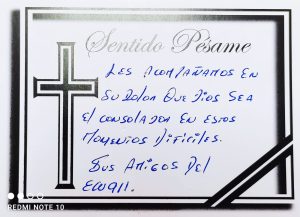 Sentido Pésame
LES ACOMPAÑAMOS EN
SU DOLOR QUE DIOS SEA
El CONSOLADOR EN ESTOS
MOMENTOS DIFICILES.
SUS AMIGOS DEL
ECU911.
REDMI NOTE 10